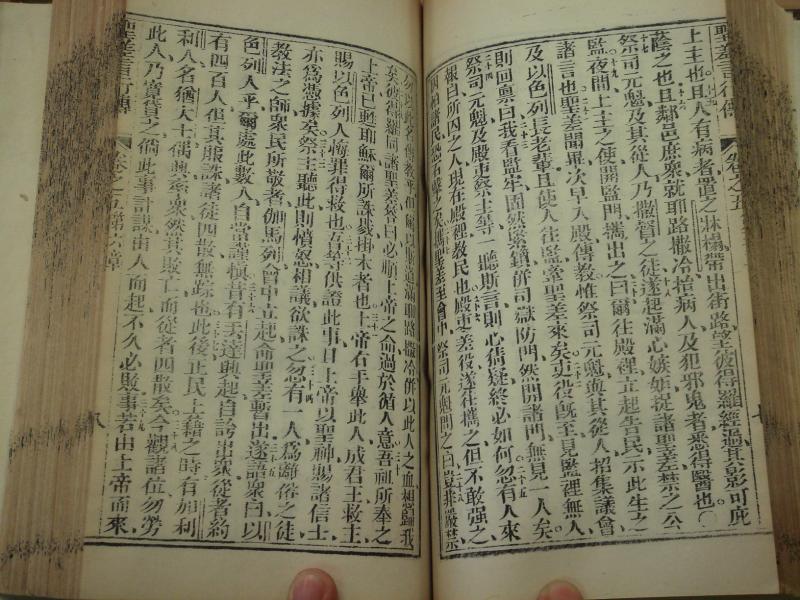 聖差言行傳 卷之五
上主也且人有病者置之牀榻帶出街路望彼得羅經過其影可庇
蔭之也且鄰邑庶衆就耶路撒冷拾病人及犯邪鬼者悉得醫也
祭司元魁及其從人乃撒督之徒遂起滿心嫉妒捉諸聖差禁之公
監夜間上主之使開監門攜出之曰爾往殿裡立起告民示此生之
諸言也聖差聞畢次早入殿傳教惟祭司元魁與其從人招集議會
及以色列長老輩且使人往監掌聖差來矣吏役既至見監裡無人
則回稟曰我看監牢固然緊鎖併司獄防門然開諸門無見一人矣
祭司元魁及殿吏祭主等一聽斯言則心猜疑終必如何忽有人來
報曰所囚之人現在殿裡教民也殿吏差役遂往攜之但不敢强之
因怕諸民恐石擊之矣攜聖差至會中祭司元魁問之曰豈非嚴禁
勿以此名傳教乎但爾以此道滿耶路撒冷併以此人之血想歸我
矣彼得羅同諸聖差答曰必順上帝之命過於猶人意吾祖所奉之
上帝已甦耶穌爾所誅戮掛木者也上帝右手舉此人成君王救主
賜以色列人悔罪得救也吾等供證此事且上帝以聖神賜諸信士
亦爲憑據矣祭主聽此則憤怒相議欲誅之忽有一人爲離俗之徒
教法之師衆民所敬者伽馬列會中立起命聖差暫出遂語衆曰以
色列人乎爾處此數人自當謹慎昔有丟達興起自誇出衆從者約
有四百人但其服誅諸徒四散無踪也此後正民上籍之時有加利
利人名猶大士偶興惹衆然其敗亡而從者四散矣今觀諸位勿勞
此人乃寬貸之倘此事計謀由人而起不久必敗事若由上帝而來
聖差言行傳 卷之五第六章 八